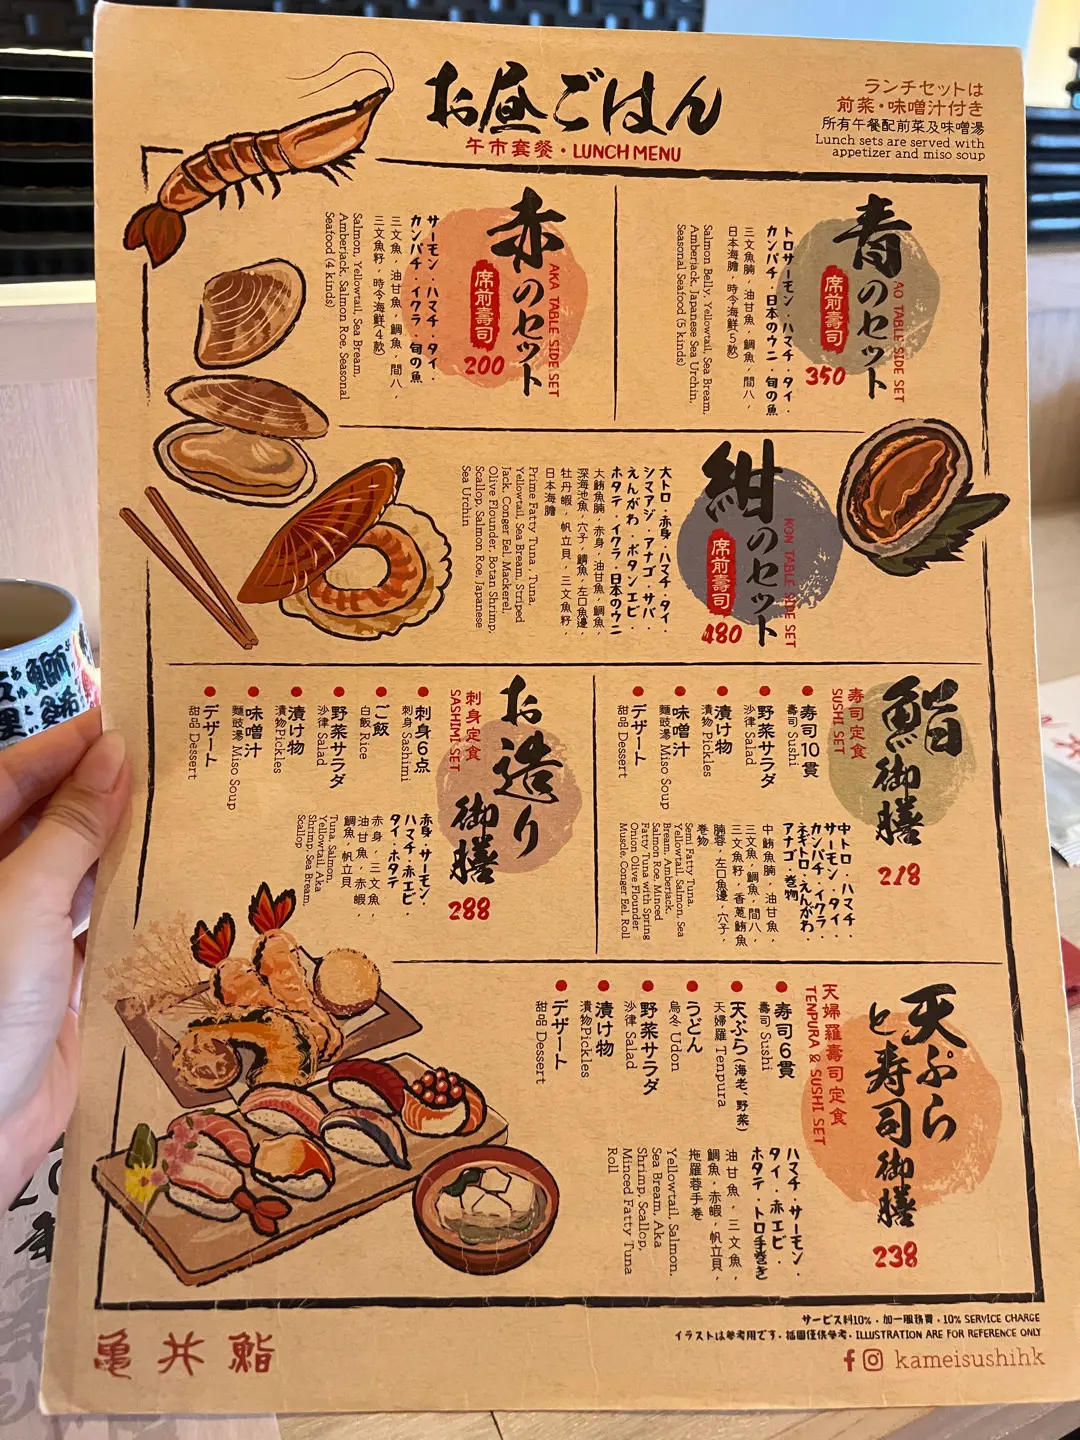 お昼ごはん
午市套餐・LUNCH MENU
ランチセットは
前菜・味噌汁付き
所有午餐配前菜及味噌湯
Lunch sets are served with
appetizer and miso soup
青のセット
AO TABLE SIDE SET
席前壽司
350
トロサーモン・ハマチ・タイ・
カンパチ・日本のウニ・旬の魚
三文魚腩，油甘魚，鯛魚，間八，
日本海膽，時令海鮮(5款)
Salmon Belly, Yellowtail, Sea Bream,
Amberjack, Japanese Sea Urchin,
Seasonal Seafood (5 kinds)
赤のセット
AKA TABLE SIDE SET
席前壽司
200
サーモン・ハマチ・タイ・
カンパチ・イクラ・旬の魚
三文魚，油甘魚，鯛魚，間八，
三文魚籽，時令海鮮(4款)
Salmon, Yellowtail, Sea Bream,
Amberjack, Salmon Roe, Seasonal
Seafood (4 kinds)
紺のセット
KON TABLE SIDE SET
席前壽司
480
大トロ・赤身・ハマチ・タイ・
シマアジ・アナゴ・サバ・
えんがわ・ボタンエビ・
ホタテ・イクラ・日本のウニ
大鮪魚腩，赤身，油甘魚，鯛魚，
深海池魚，穴子，鯖魚，左口魚邊，
牡丹蝦，帆立貝，三文魚籽，
日本海膽
Prime Fatty Tuna, Tuna,
Yellowtail, Sea Bream, Striped
Jack, Conger Eel, Mackerel,
Olive Flounder, Botan Shrimp,
Scallop, Salmon Roe, Japanese
Sea Urchin
鮨御膳
壽司定食
SUSHI SET
218
● 寿司10貫
壽司 Sushi
● 野菜サラダ
沙律 Salad
● 漬け物
漬物 Pickles
● 味噌汁
麵豉湯 Miso Soup
● デザート
甜品 Dessert
中トロ・ハマチ・
サーモン・タイ・
カンパチ・イクラ・
ネギトロ・えんがわ・
アナゴ・巻物
中鮪魚腩，油甘魚，
三文魚，鯛魚，間八，
三文魚籽，香蔥鮪魚
腩蓉，左口魚邊，穴子，
卷物
Semi Fatty Tuna,
Yellowtail, Salmon, Sea
Bream, Amberjack,
Salmon Roe, Minced
Fatty Tuna with Spring
Onion, Olive Flounder
Muscle, Conger Eel, Roll
お造り御膳
刺身定食
SASHIMI SET
288
● 刺身6点
刺身 Sashimi
● ご飯
白飯 Rice
● 野菜サラダ
沙律 Salad
● 漬け物
漬物 Pickles
● 味噌汁
麵豉湯 Miso Soup
● デザート
甜品 Dessert
赤身・サーモン・
ハマチ・赤エビ・
タイ・ホタテ
赤身，三文魚，
油甘魚，赤蝦，
鯛魚，帆立貝
Tuna, Salmon,
Yellowtail, Aka
Shrimp, Sea Bream,
Scallop
天ぷら
と寿司御膳
天婦羅壽司定食
TENPURA & SUSHI SET
238
● 寿司6貫
壽司 Sushi
● 天ぷら(海老、野菜)
天婦羅 Tenpura
● うどん
烏冬 Udon
● 野菜サラダ
沙律 Salad
● 漬け物
漬物 Pickles
● デザート
甜品 Dessert
ハマチ・サーモン・
タイ・赤エビ・
ホタテ・トロ手巻き
油甘魚，三文魚，
鯛魚，赤蝦，帆立貝，
拖羅蓉手卷
Yellowtail, Salmon,
Sea Bream, Aka
Shrimp, Scallop,
Minced Fatty Tuna
Roll
サービス料10%・加一服務費・10% SERVICE CHARGE
イラストは参考用です・插圖僅供參考・ILLUSTRATION ARE FOR REFERENCE ONLY
kameisushihk
亀井鮨